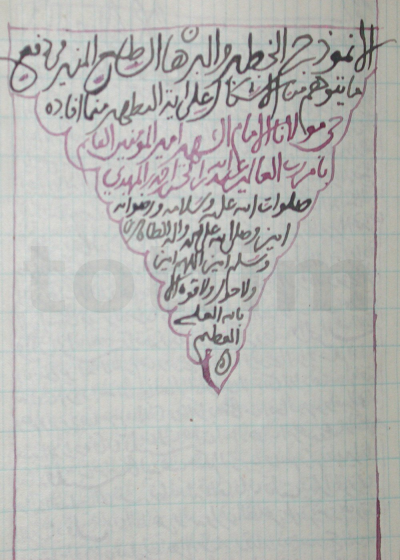 الانموذج الخطير والبرهان الساطع المنير في دفع
ما يتوهم من الاشكال على اية التطهير مما افاده
مولانا الامام الشهيد امير المؤمنين القايم
بامر رب العالمين عبدالله بن الحسن احمد المهدي
صلوات الله عليه وسلامه ورضوانه
امين وصل الله على محمد واله الطاهرين
وسلم امين اللهم امين
ولا حول ولا قوة الا
بالله العلي
العظيم